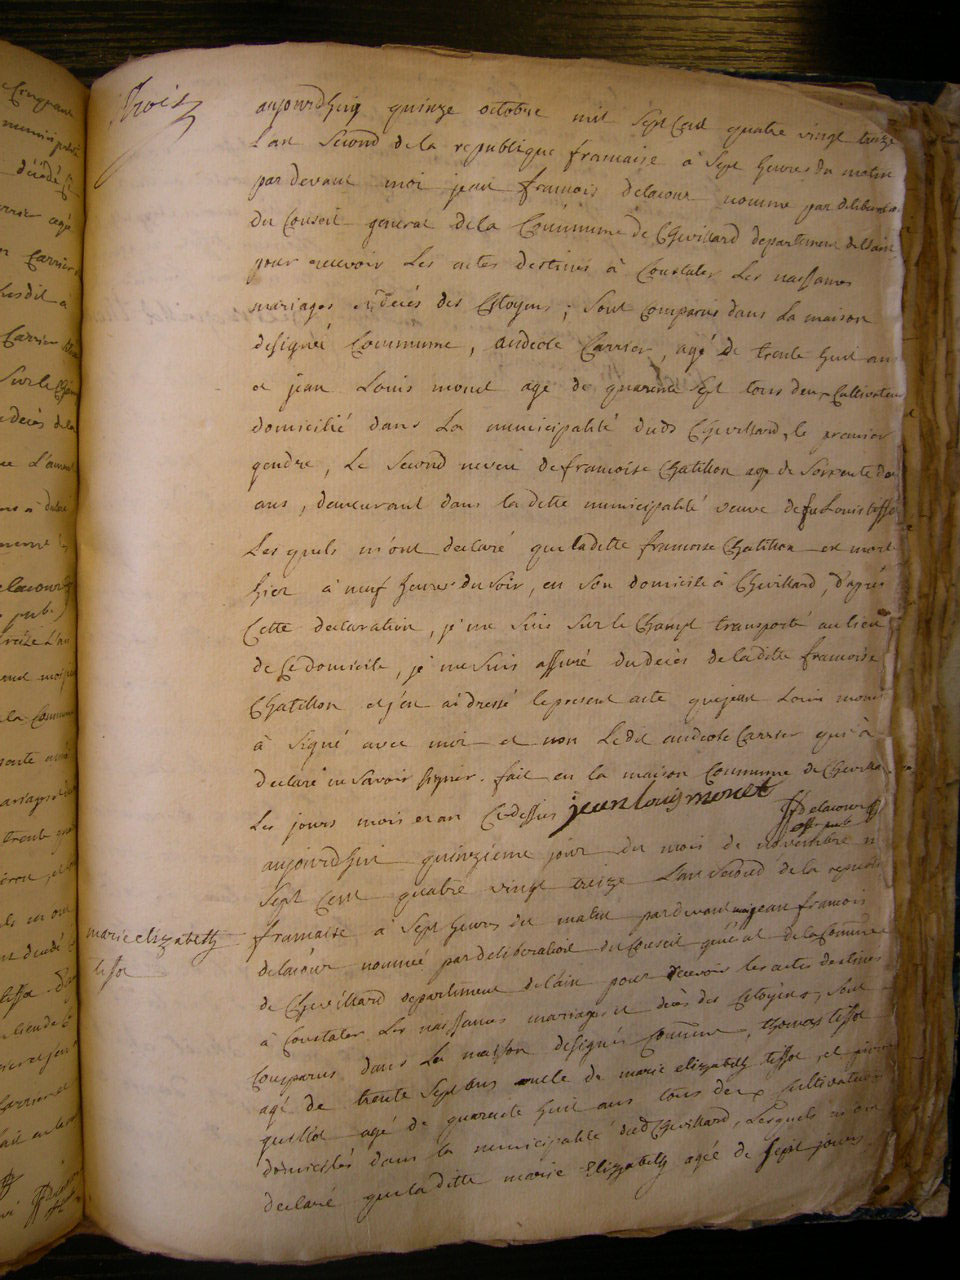 trois
aujourdhuy quinze octobre mil sept cent quatre vingt treize
Lan second de la republique francaise a sept heures du matin
par devant moi jean francois delacour nommé par deliberation
du Conseil general dela Commune de Chevillard departement delain
pour recevoir Les actes destinés à Constater Les naissances
mariages et decés des Citoyens ; sont comparus dans La maison
designée Commune, andeole Carrier, agé de trente huit ans
et jean Louis monet agé de quarente sept tous deux Cultivateurs
domicilié dans La municipalité dudt Chevillard, le premier
gendre, Le second neveu de francoise Chatillon agé de soixente
ans, demeurant dans ladette municipalité veuve de feu Louis tissot
Lesquels m'ont declaré que ladette francoise Chatillon est morte
hier à neuf heures du soir, en son domicile à Chevillard, d'après
Cette declaration, je me suis sur le Champt transporté au lieu
de Ce domicile, je me suis assuré du decès de laditte francoise
Chatillon et jén ai dressé le present acte que jean Louis monet
à signé avec moi et non Ledit andeole Carrier qui à
declaré ne savoir signer. fait en la maison Commune de Chevillard
Les jours mois et an Cydessus jean louis monet
JfDelacour
off pub
aujourdhui quinzieme jour du mois de novembre
sept cent quatre vingt treize Lan second de la republi
marie elizabeth
tissot
francaise à sept heures du matin par devant moi jean francois
delacour nommé par deliberation du Conseil général dela Commune
de Chevillard departement delain pour recevoir les actes destinés
à Constater Les naissances mariages et decès des Citoyens, sont
Comparus dans La maison designée Commune, thomas tissot
agé de trente sept ans oncle de marie elizabeth tissot, et
guillot agé de quarente huit ans tous deux Cultivateurs
domiciliés dans la municipalité dud Chevillard, Lesquels m'ont
declaré que laditte marie Elizabeth agée de sept jours